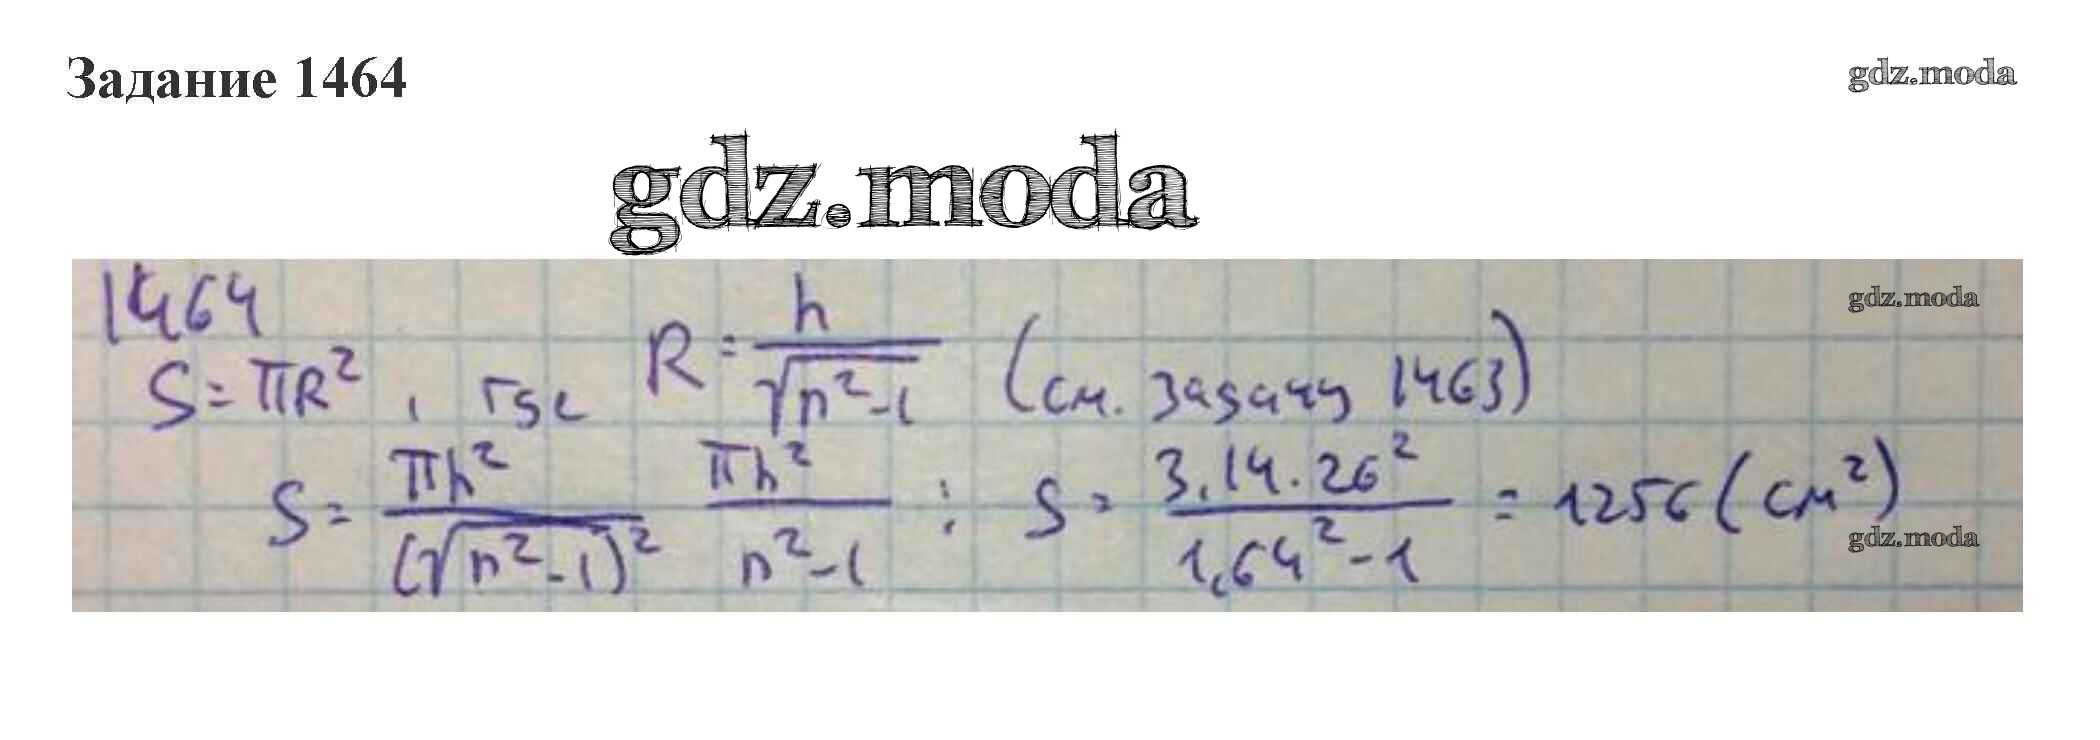 Задание 1464
gdz.moda
gdz.moda
1464
gdz.moda
S = πR², где R = h / √(n²-1) (см. задачу 1463)
S = πh² / (√(n²-1))² πh² / (n²-1) ; S = 3,14·26² / (1,64²-1) = 1256 (см²)
gdz.moda